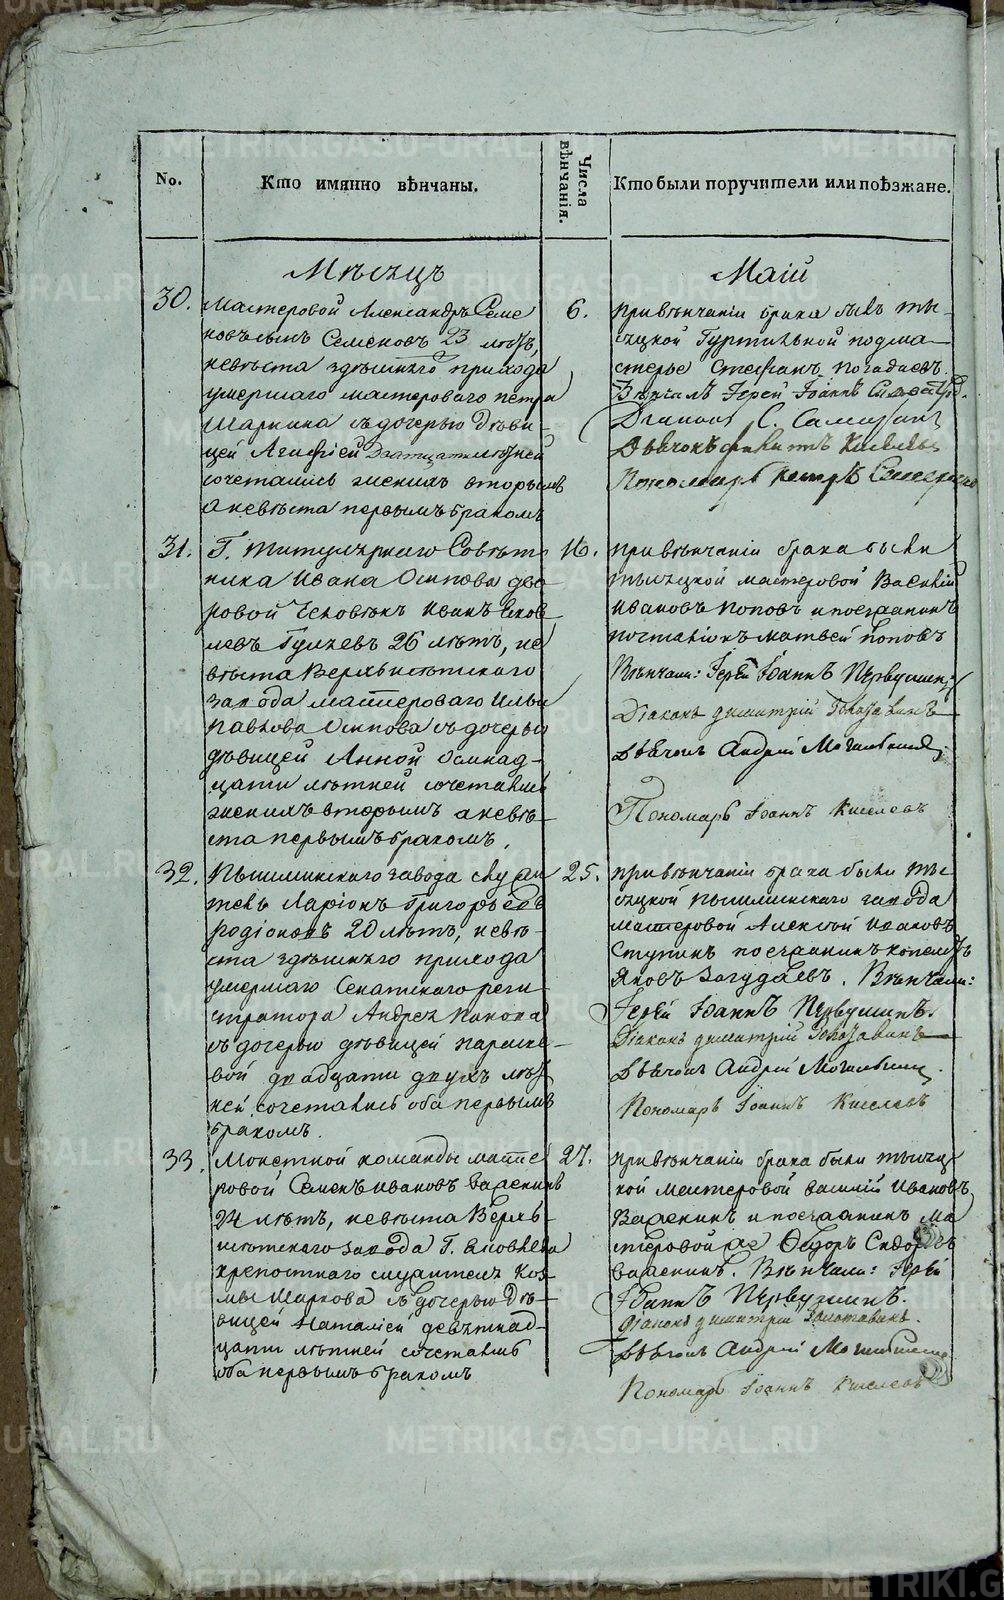 No.
Кто имянно вѣнчаны.
Числа вѣнчанія.
Кто были поручители или поѣзжане.
Мѣсяцъ
Маій
30.
мастеровой Александръ Семе
новъ сынъ Семеновъ 23 лѣтъ,
невѣста здѣшняго прихода
умершаго мастероваго петра
Шаркина съ дочерью дѣви-
цей Агафіей Двадцатилѣтней
сочетались женихъ вторымъ
а невѣста первымъ бракомъ
6.
При вѣнчаніи брака былъ ты-
сяцкой Гуртильной подма-
стерье Стефанъ Погадаевъ.
Вѣнчалъ Іерей Іоаннъ
Діаконъ С.
Дьячокъ Киселевъ
Пономарь петръ
31.
Г. Титулярнаго Совѣт-
ника Ивана Осипова дво
ровой Человѣкъ иванъ Яков
левъ Гуляевъ 26 лѣтъ, не
вѣста Верхъисетскаго
завода мастероваго Ильи
Павлова Осипова съ дочерью
дѣвицей Анной осмнад-
цати лѣтней сочетались
женихъ вторымъ а невѣ-
ста первымъ бракомъ.
16.
При вѣнчаніи брака были
тысяцкой мастеровой Василій
ивановъ поповъ и поезжанинъ
почталіонъ матвей поповъ
Вѣнчали: Іерей Іоаннъ Первушинъ
Діаконъ димитрій Золотавинъ
Дьячокъ Андрей Могильников
Пономарь Іоаннъ Киселевъ
32.
Пышминскаго завода служи
тель Ларіонъ Григорьевъ
родіоновъ 20 лѣтъ, невѣ-
ста здѣшняго прихода
умершаго Сенатскаго реги-
стратора Андрея попова
съ дочерью дѣвицей параске-
вой двадцати двухъ лѣт
ней, сочетались оба первымъ
бракомъ.
25.
При вѣнчаніи брака были ты
сяцкой пышминскаго завода
мастеровой Алексей ивановъ
Ступинъ поезжанинъ
Яковъ Загудаевъ. Вѣнчали:
Іерей Іоаннъ Первушинъ.
Діаконъ димитрій Золотавинъ
Дьячокъ Андрей Могильников
Пономарь Іоаннъ Киселевъ
33.
Монетной команды масте
ровой Семенъ ивановъ Васенинъ
24 лѣтъ, невѣста Верхъ-
исетскаго завода Г. Яковлева
крепостнаго служителя Коз-
мы Шаркова съ дочерью дѣ-
вицей Наталіей девятнад-
цати лѣтней сочетались
оба первымъ бракомъ
27.
При вѣнчаніи брака были тысяц-
кой мастеровой василій Ивановъ
Васенинъ и поезжанинъ ма
стеровой же Федоръ Сидоръ
васенинъ. Вѣнчали: Іерей
Іоаннъ Первушинъ.
діаконъ димитрій Золотавинъ.
Дьячокъ Андрей Могильников
Пономарь Іоаннъ Киселевъ
METRIKI.GASO-URAL.RU